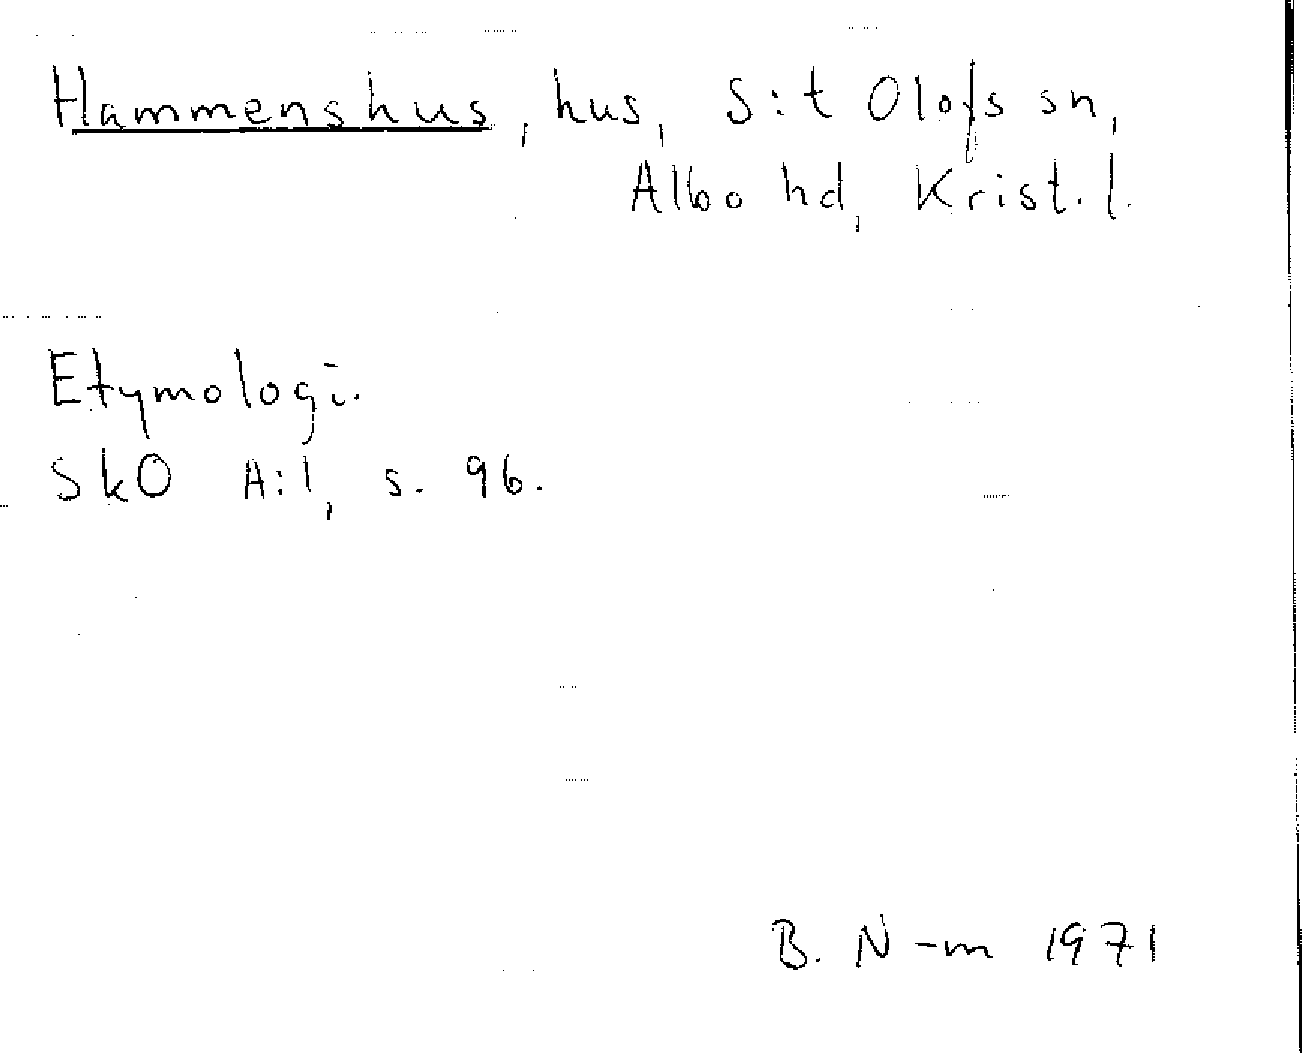 Hammenshus, hus, S:t Olofs sn,
Albo hd, Krist. l.
Etymologi.
SkO A:1, s. 96.
B. N-m 1971